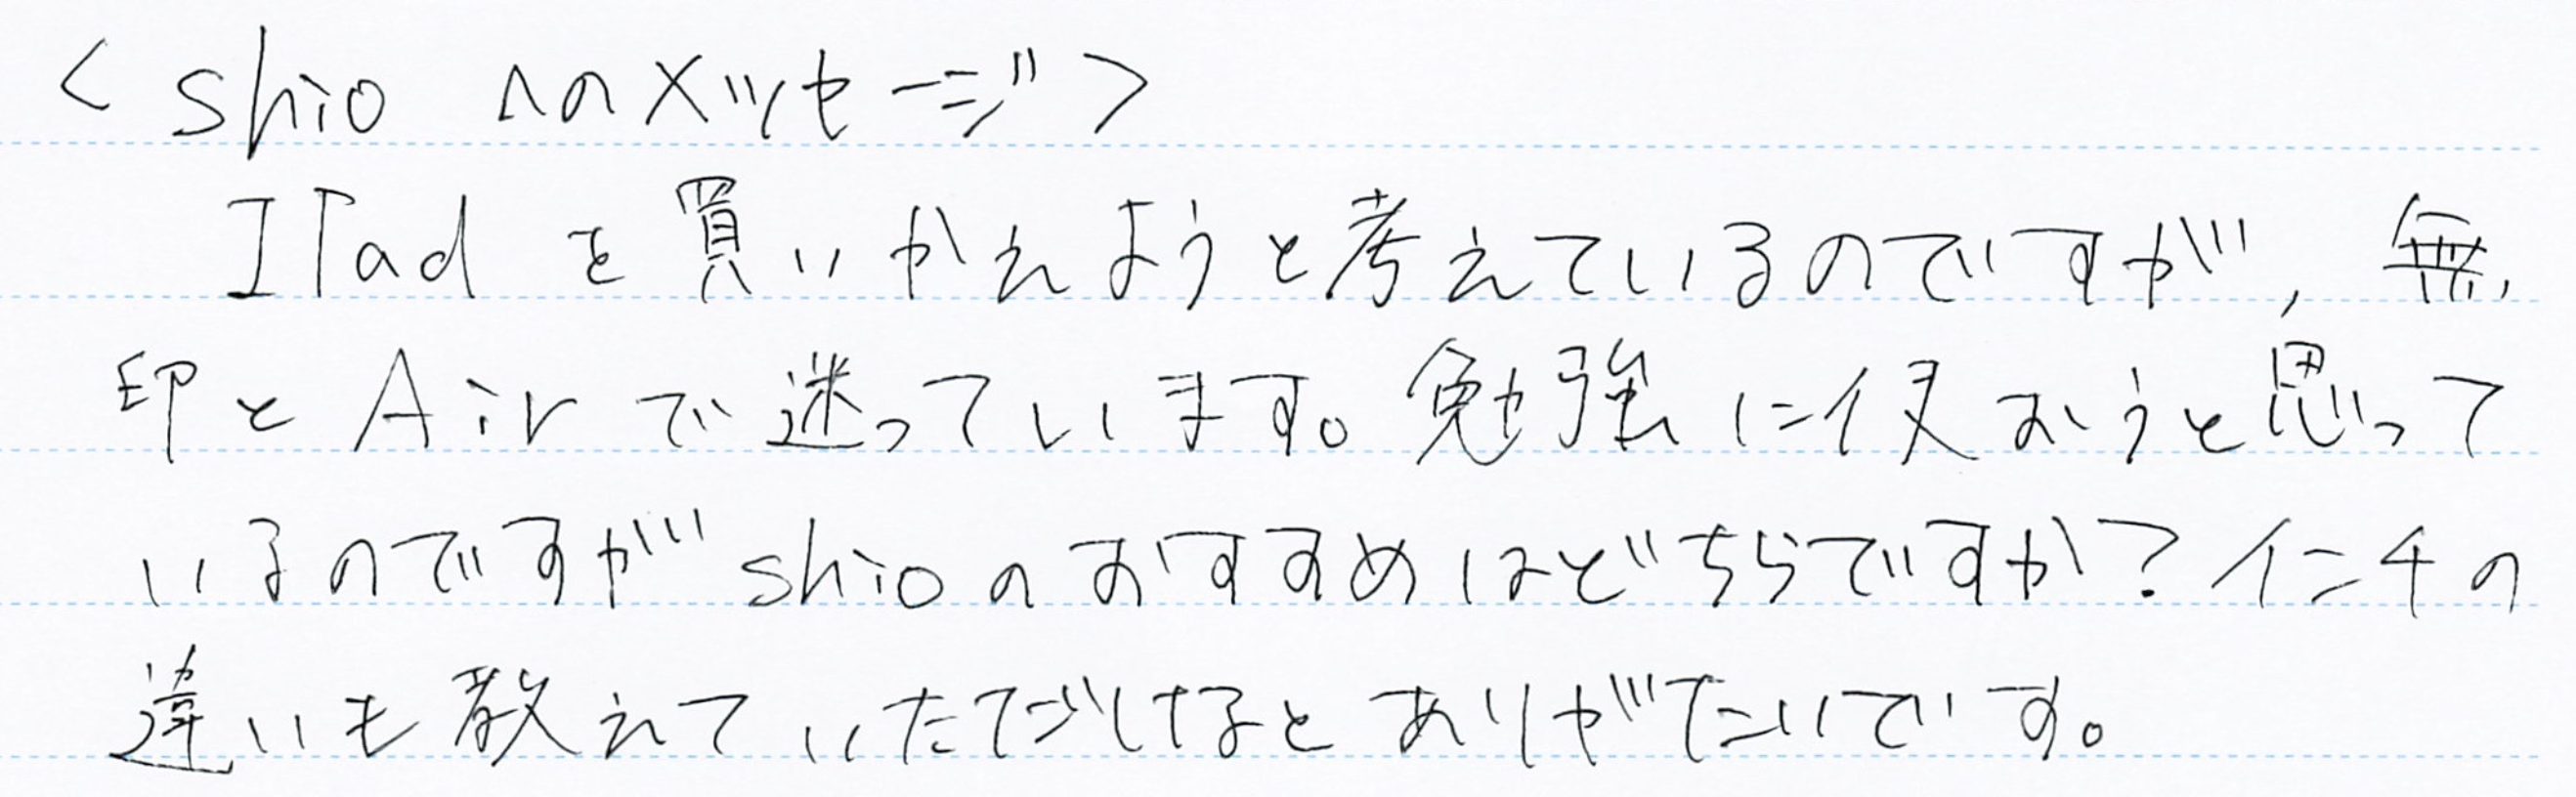 <shio へのメッセージ>
IPadを買いかえようと考えているのですが,無
印とAirで迷っています。勉強に使おうと思って
いるのですがshioのおすすめはどちらですか?インチの
違いも教えていただけるとありがたいです。